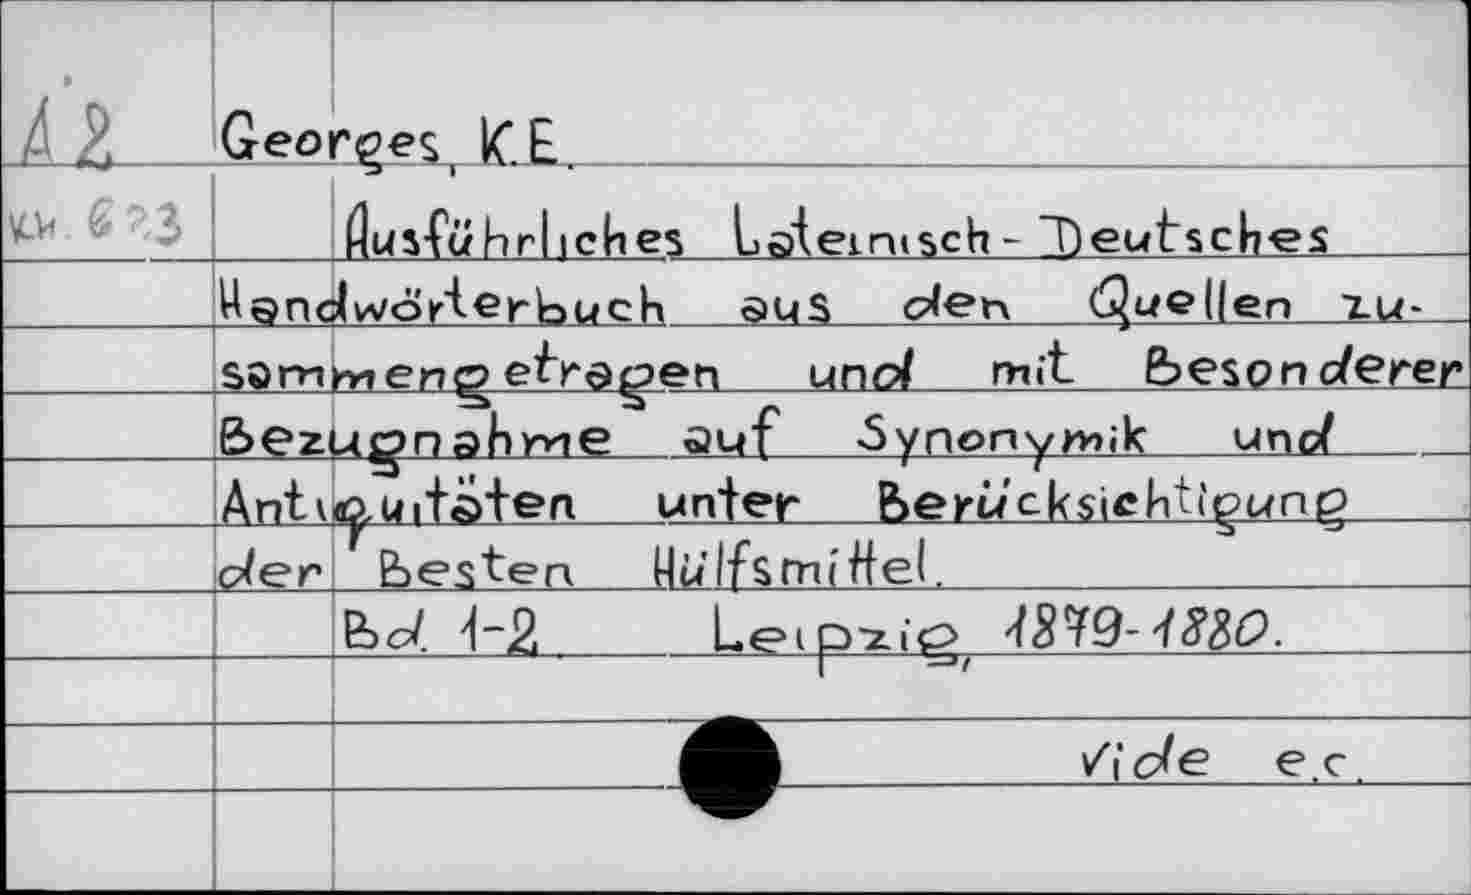 A2 Georges, K.E.
Ausführliches Lateinisch-Deutsches
Handwörterbuch aus den Quellen zu-
sammengetragen und mit Besonderer
Bezugnahme auf Synonymik und
Antiquitäten unter Berücksichtigung
der Besten Hülfsmittel.
Bd. 1-2. Leipzig, 1879-1880.
Vide e.c.